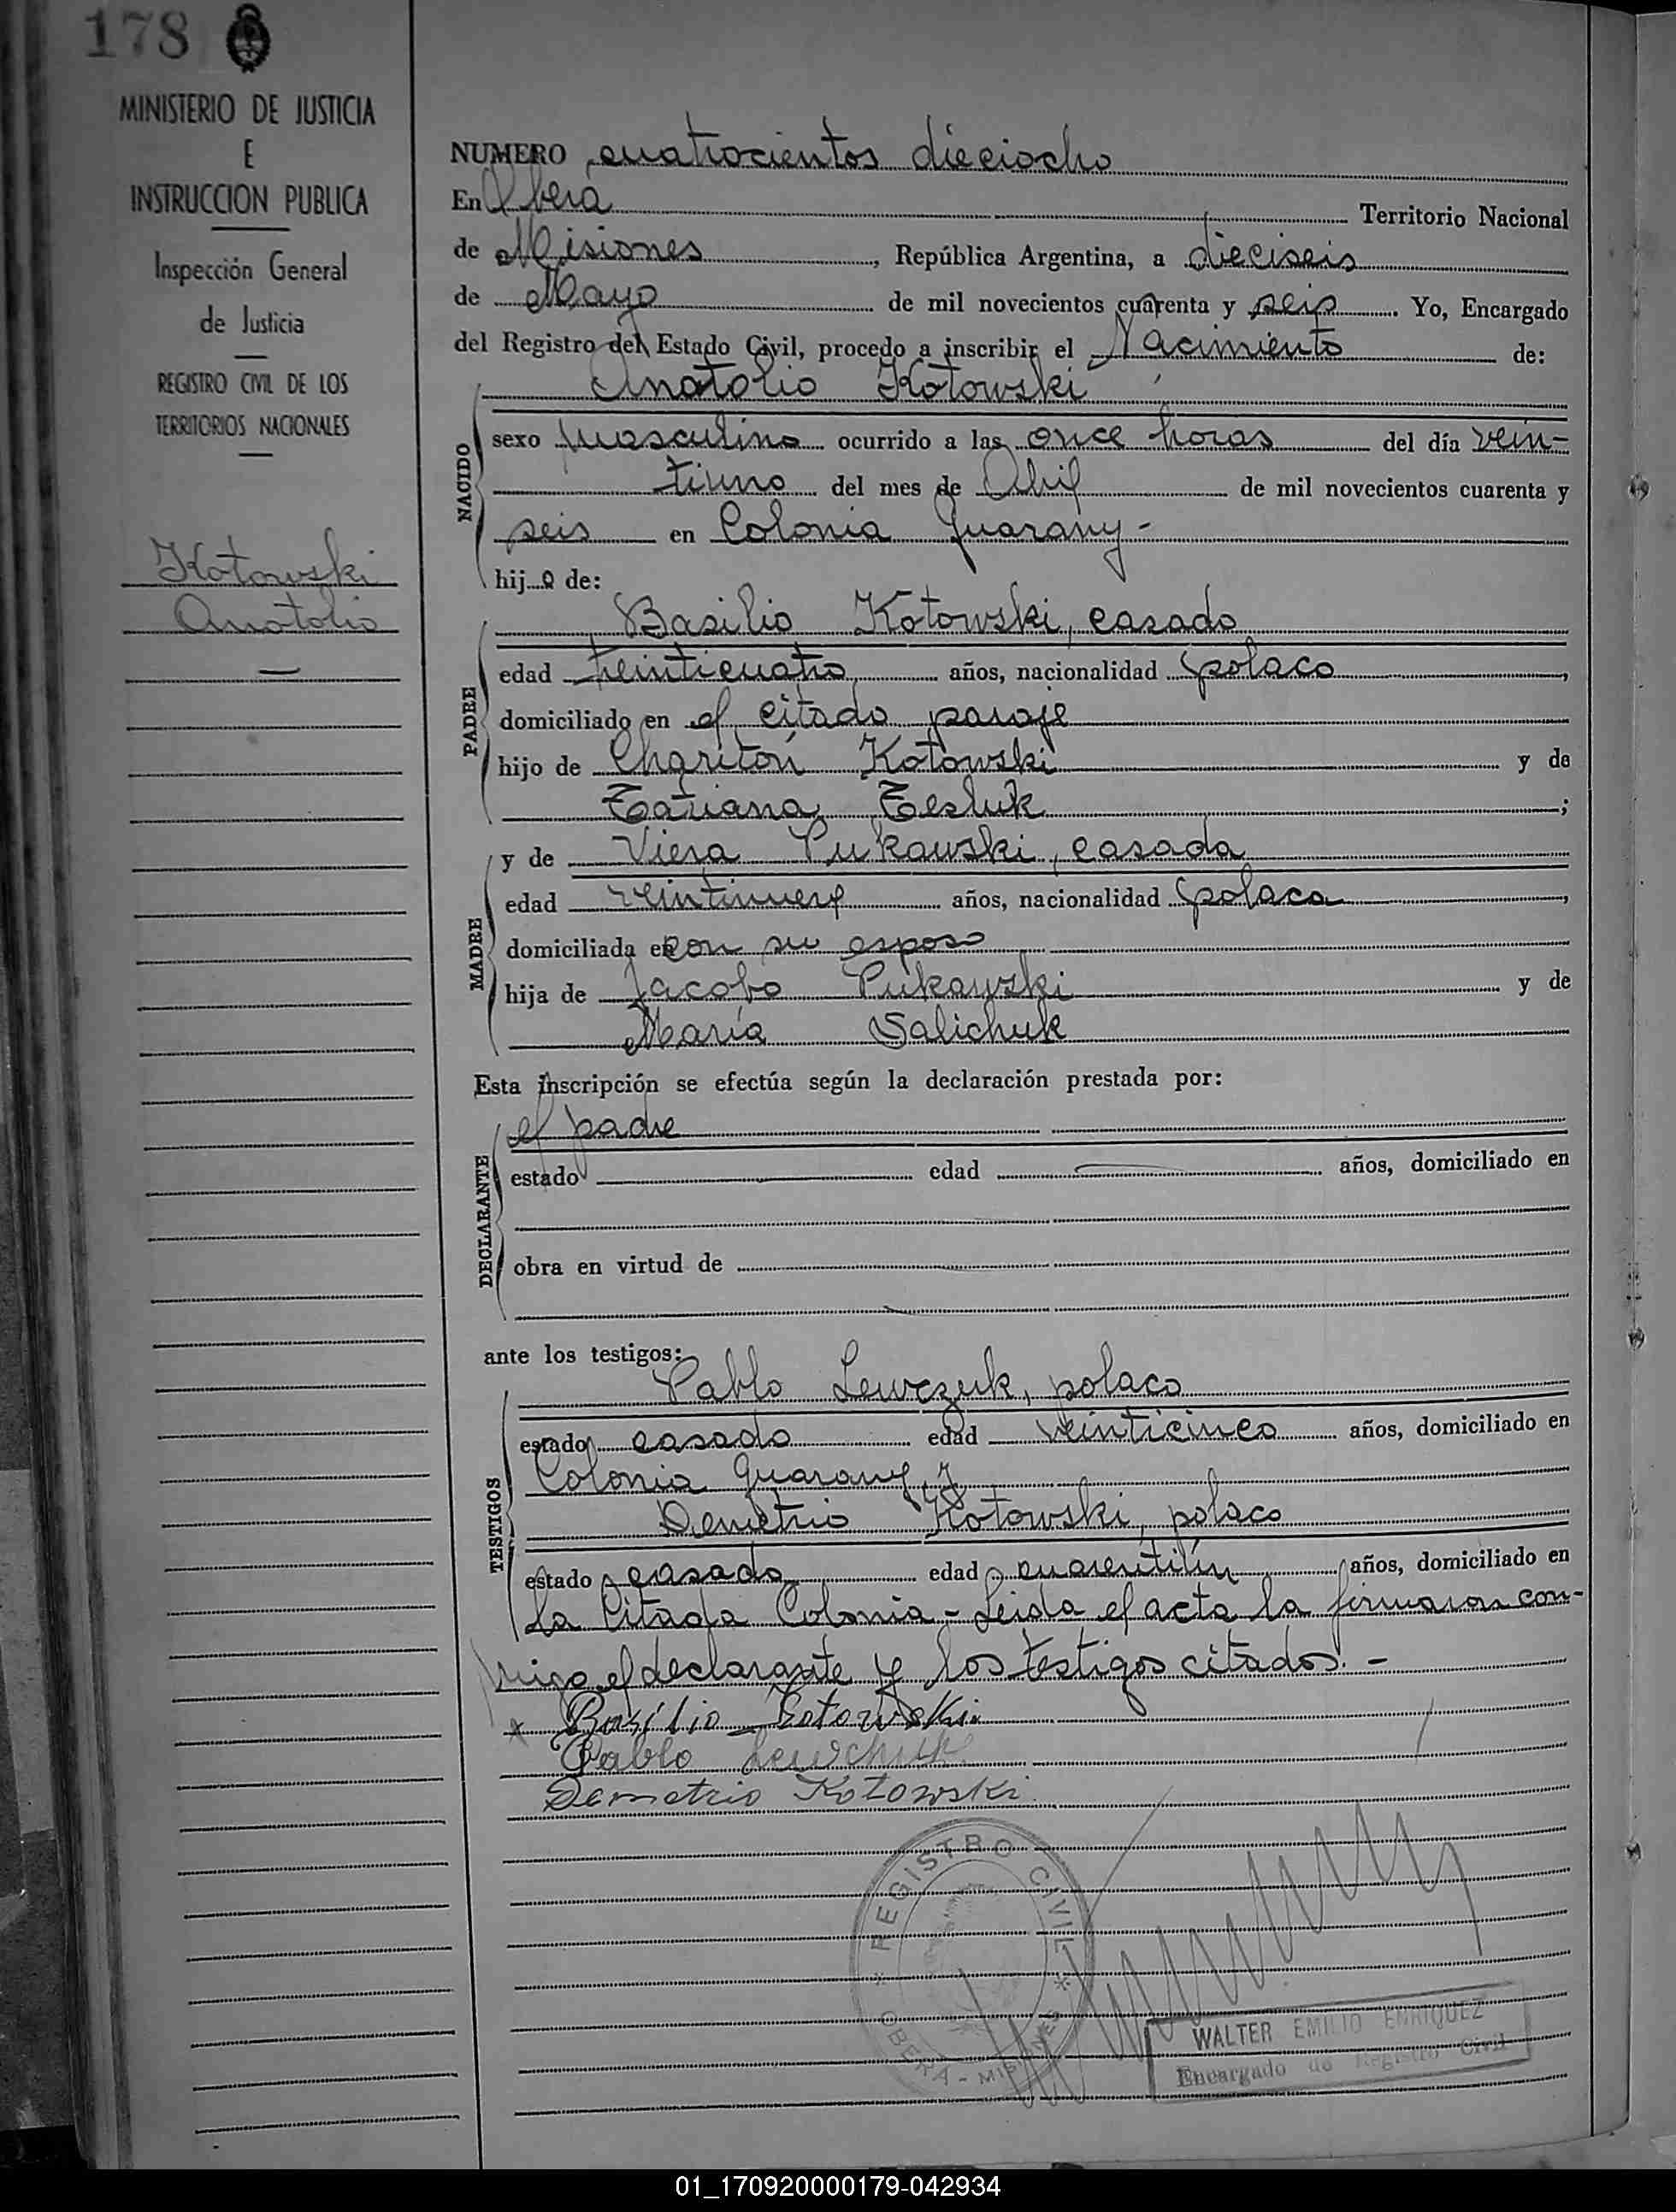 178
MINISTERIO DE JUSTICIA
E
INSTRUCCION PUBLICA
Inspección General
de Justicia
REGISTRO CIVIL DE LOS
TERRITORIOS NACIONALES
Kotowski
Anatolio
NUMERO cuatrocientos dieciocho
En Obera Territorio Nacional
de Misiones, República Argentina, a dieciseis
de Mayo de mil novecientos cuarenta y seis. Yo, Encargado
del Registro del Estado Civil, procedo a inscribir el Nacimiento de:
Anatolio Kotowski
NACIDO
sexo masculino ocurrido a las once horas del día vein-
tiuno del mes de Abril de mil novecientos cuarenta y
seis en Colonia Guarany-
hijo de:
PADRE
Basilio Kotowski, casado
edad veinticuatro años, nacionalidad polaco,
domiciliado en el citado paraje
hijo de Chariton Kotowski y de
Tatiana Tesluk;
MADRE
y de Viera Pukawski, casada
edad veintinueve años, nacionalidad polaca,
domiciliada en con su esposo
hija de Jacobo Pukawski y de
María Salichuk
Esta inscripción se efectúa según la declaración prestada por:
DECLARANTE
el padre
estado edad años, domiciliado en
obra en virtud de
ante los testigos:
TESTIGOS
Pablo Lewczuk, polaco
estado casado edad veinticinco años, domiciliado en
Colonia Guarany, y
Demetrio Kotowski, polaco
estado casado edad cuarentiún años, domiciliado en
la citada Colonia - Leida el acta la firmaron con-
migo el declarante y los testigos citados. -
x Basilio Kotowski
Pablo Lewchuk
Demetrio Kotowski
REGISTRO CIVIL
OBERA - MISIONES
WALTER EMILIO ENRIQUEZ
Encargado de Registro Civil
01_170920000179-042934